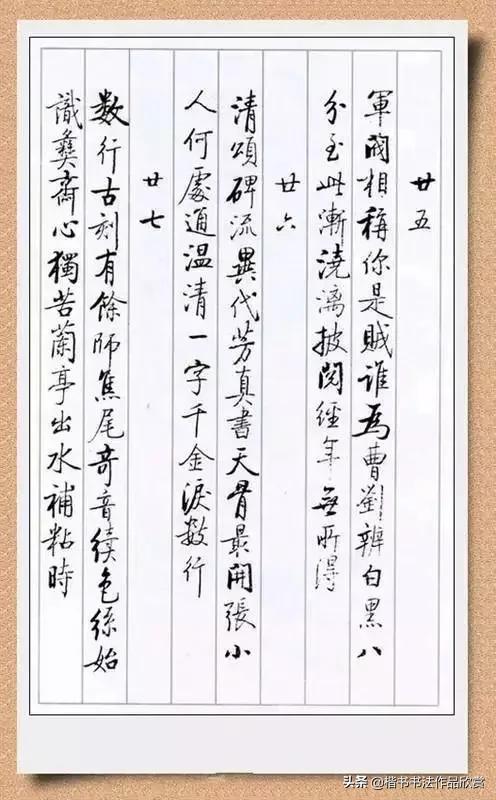 廿五
軍閥相稱你是賊誰為曹劉辨白黑八
分至此漸澆漓披閱經年無所得
廿六
清頌碑流異代芳真書天骨最開張小
人何處通温清一字千金淚数行
廿七
数行古刻有餘師焦尾奇音續色絲始
識彝齋心獨苦蘭亭出水補粘時
头条 @楷书书法作品欣赏